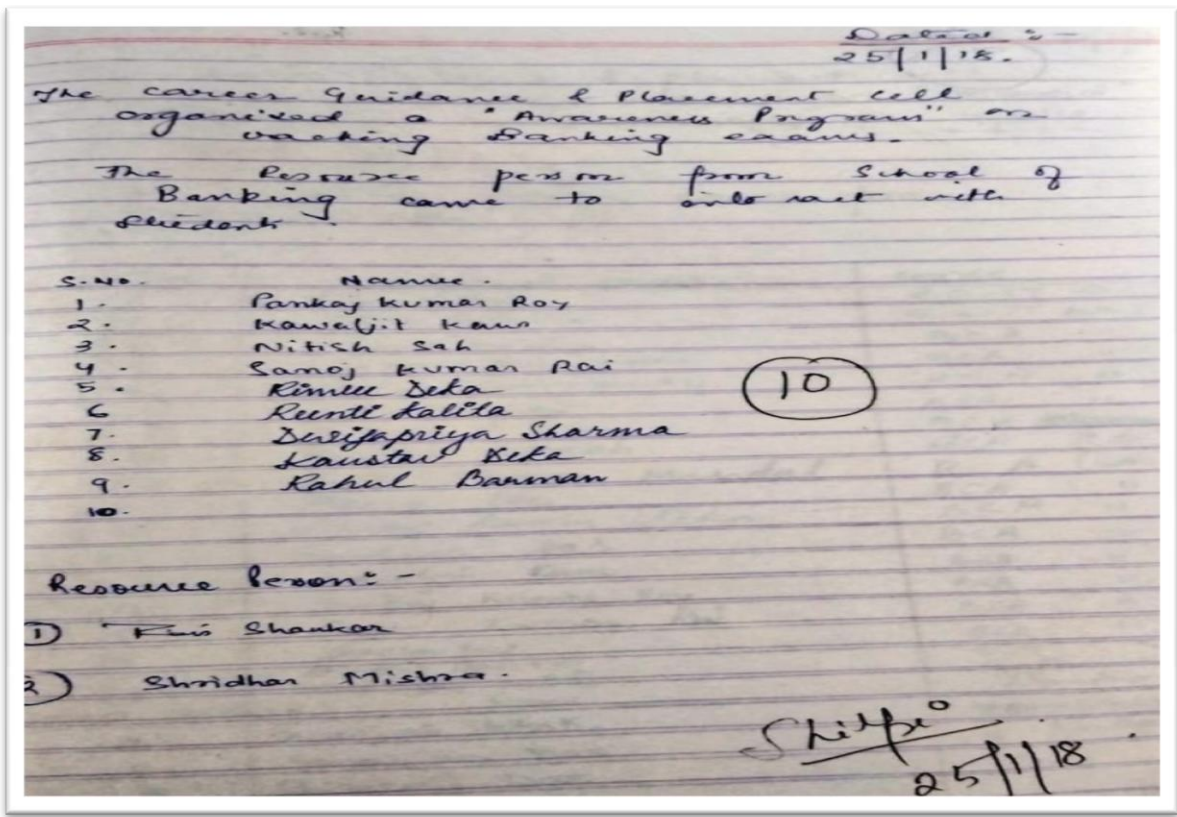 Dated :-
25/1/18.
The career Guidance & Placement cell
organized a "Awareness Program" on
cracking Banking exams.
The Resource person from School of
Banking came to interact with
students.
S.No. Name.
1. Pankaj Kumar Roy
2. Kawaljit Kaur
3. Nitish Sah
4. Sanoj Kumar Rai
5. Deka
6 Kalita
7. Sharma
8. Kaustav Deka
9. Rahul Barman
10.
10
Resource Person:-
1 Shankar
2) Shridhar Mishra.
Shilpi
25/1/18